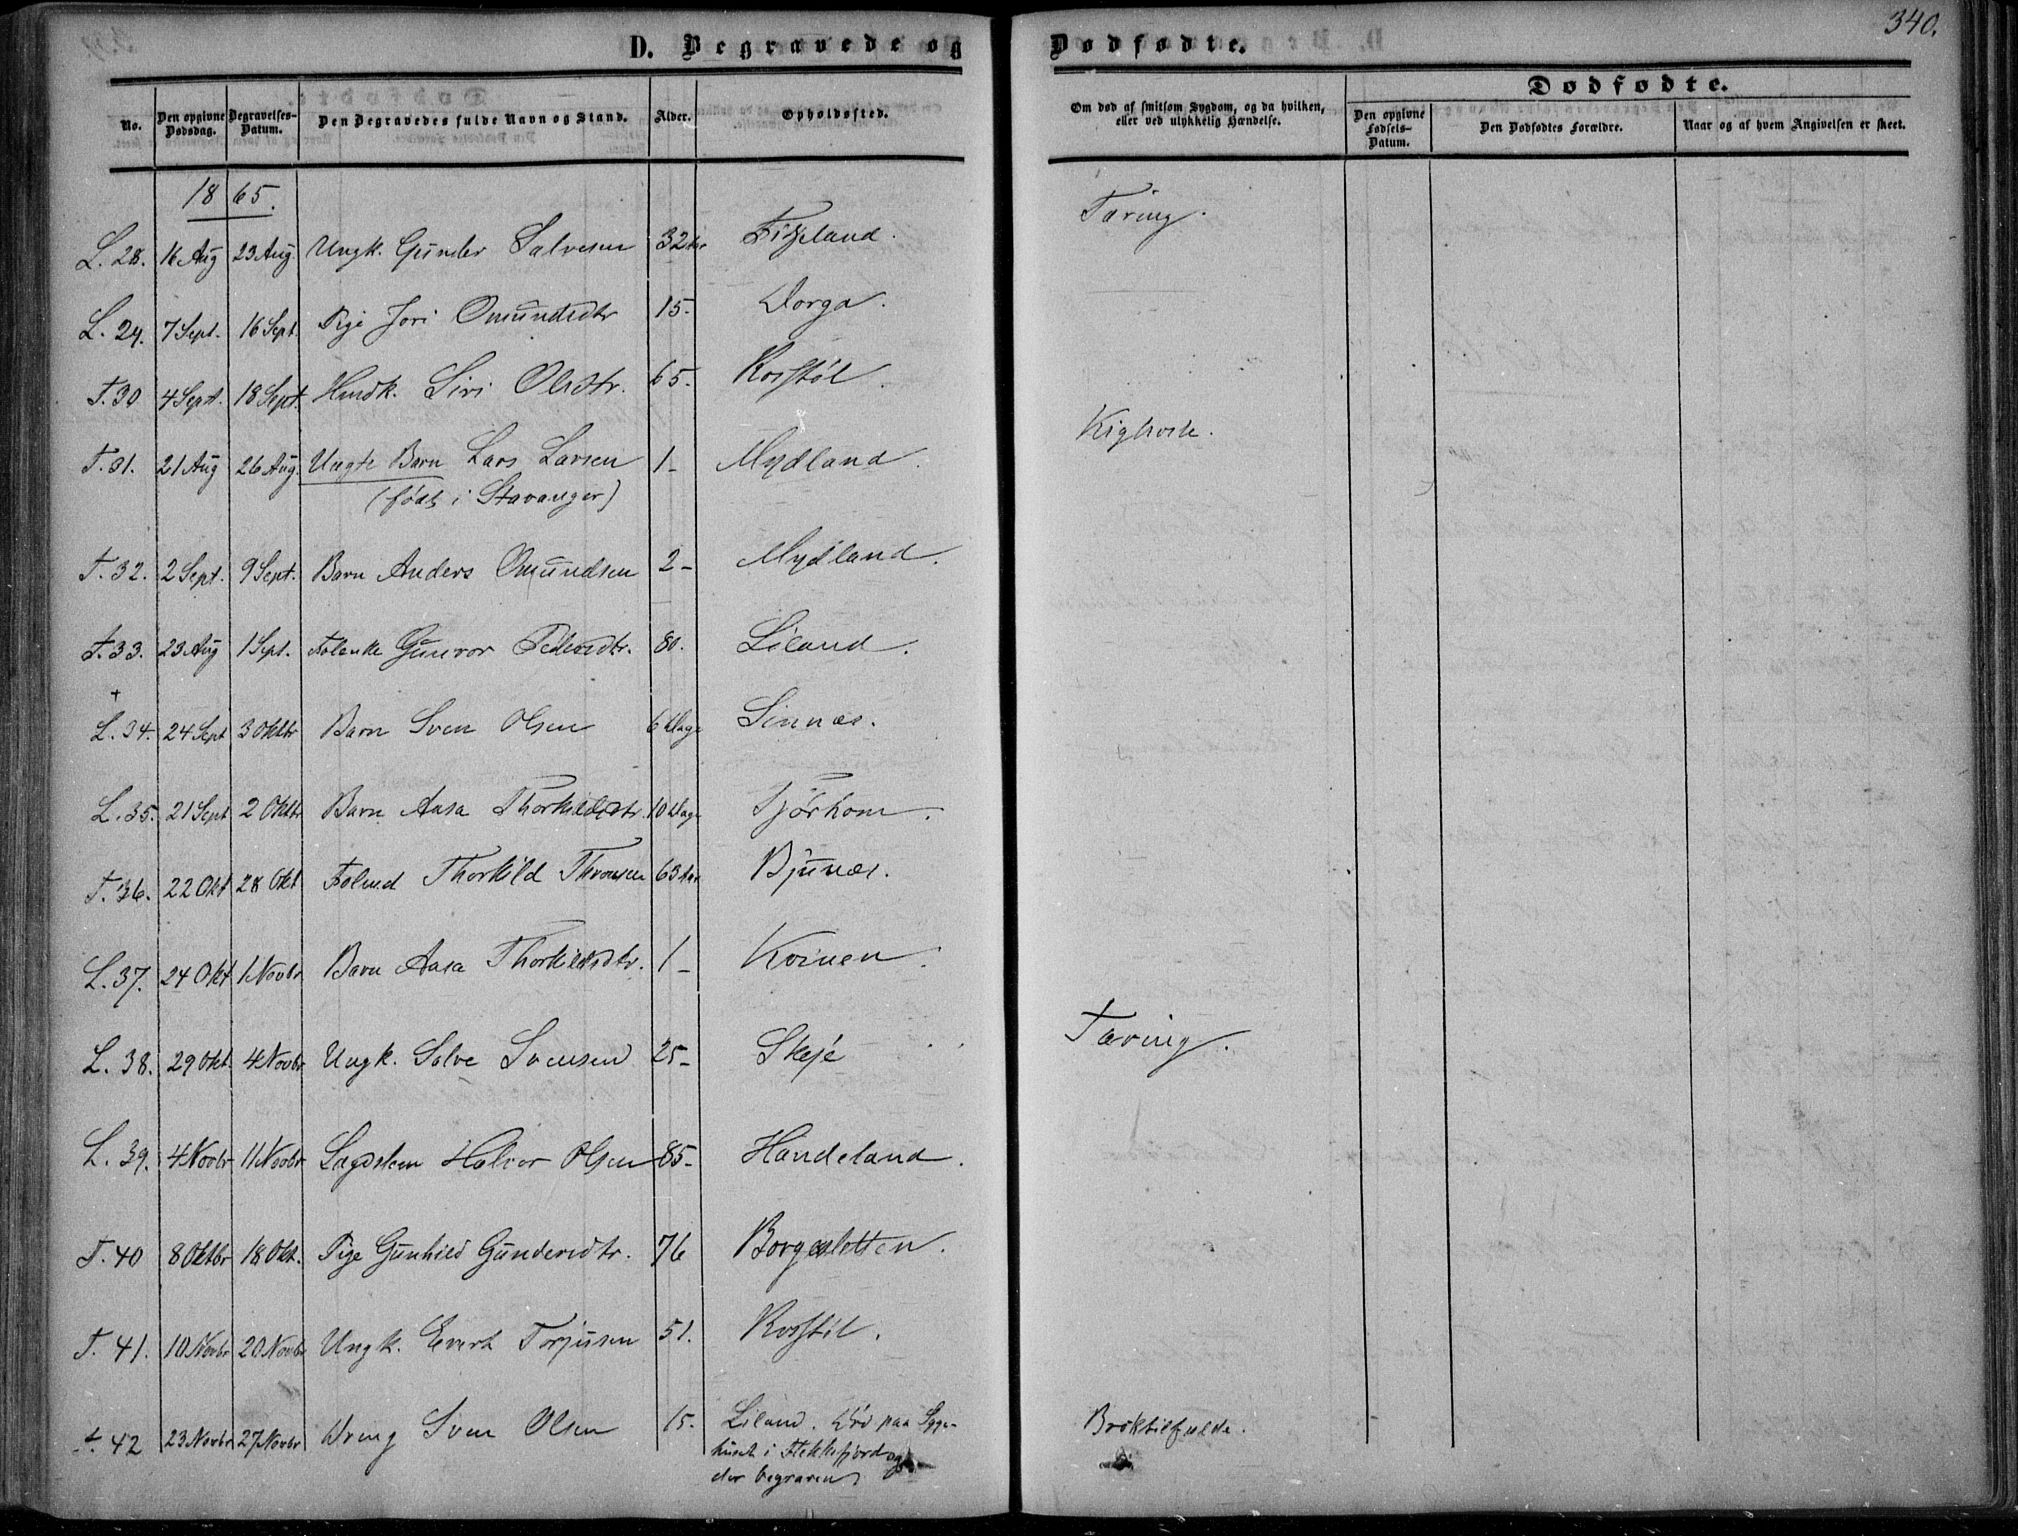 340.
D. Begravede og Dødfødte.
No.
Den opgivne Dødsdag.
Begravelses-Datum.
Den Begravedes fulde Navn og Stand.
Alder.
Opholdssted.
Om død af smitsom Sygdom, og da hvilken, eller ved ulykkelig Hændelse.
Dødfødte.
Den opgivne Fødsels-Datum.
Den Dødfødtes Forældre.
Naar og af hvem Angivelsen er skeet.
1865.
L. 28. 16 Aug 23 Aug. Ungk. Gunder Salvesen 32 Aar Fidjeland. Tæring.
L. 29. 7 Sept. 16 Sept. Pige Jori Omundsdtr 15- Dorga.
T. 30 4 Sept. 18 Sept. Hmdk. Siri Olsdtr. 65- Rosstøl.
T. 31. 21 Aug 26 Aug. Uægte Barn Lars Larsen 1- Mydland. Kighoste.
(født i Stavanger)
T. 32. 2 Sept. 9 Sept. Barn Anders Omundsen 2- Mydland.
T. 33. 23 Aug 1 Sept. Folenke Gunvor Pedersdtr. 80. Liland.
+
L. 34. 24 Sept 3 Oktbr Barn Sven Olsen 6 Dage Sinnæs.
L. 35. 21 Sept 2 Oktbr Barn Aasa Thorkildsdtr. 10 Dage Tjørhom.
T. 36. 22 Okt 28 Okt Folmd Thorkild Thronsen 63 Aar Bjunæs.
L. 37. 24 Okt 1 Novbr Barn Aasa Thorkildsdtr. 1- Kvinen.
L. 38. 29 Okt. 4 Novbr Ungk. Salve Svensen 25- Skeje Tæring.
L. 39. 4 Novbr 11 Novbr Lægdslem Halvor Olsen 85- Handeland.
T. 40 8 Oktbr 18 Okt. Pige Gunhild Gundersdtr. 76 Borgesletten.
T. 41. 10 Novbr 20 Novbr Ungk. Evert Torjusen 51. Rosstøl.
T. 42 23 Novbr 27 Novbr Dreng Sven Olsen 15. Liland. Død paa Syge- Broktilfælde.
huset i Flekkefjord og
der begraven.